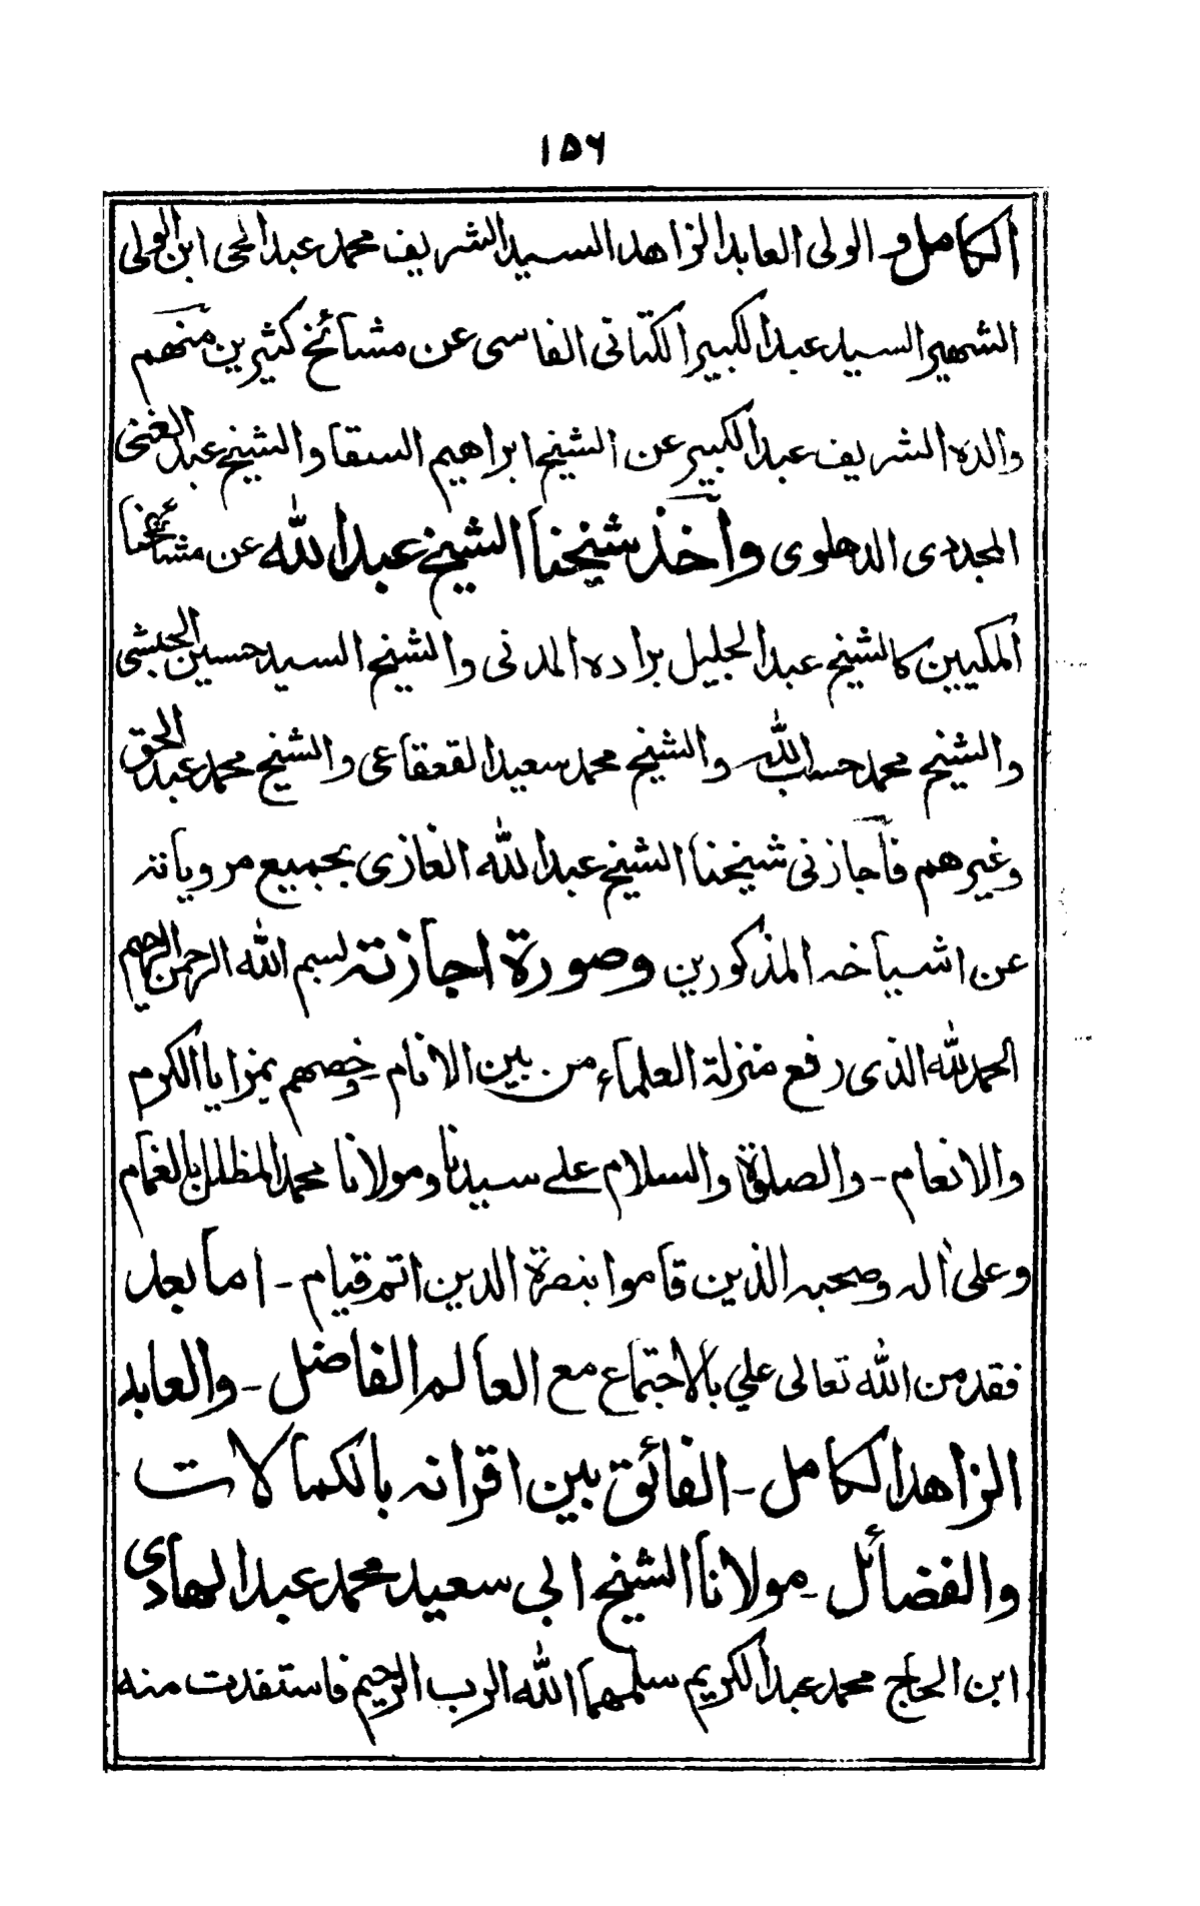 ١٥٦
الكامل والولى العابد الزاهد السيد الشريف محمد عبد الحى ابن الولى
الشهير السيد عبد الكبير الكتانى الفاسى عن مشائخ كثيرين منهم
والده الشريف عبد الكبير عن الشيخ ابراهيم السقا والشيخ عبد الغنى
المجددى الدهلوى وآخذ شيخنا الشيخ عبد الله عن مشائخنا
المكيين كالشيخ عبد الجليل براده المدنى والشيخ السيد حسين الحبشى
والشيخ محمد حسب الله والشيخ محمد سعيد القعقاعى والشيخ محمد عبد الحق
وغيرهم فآجازنى شيخنا الشيخ عبد الله الغازى بجميع مروياته
عن اشياخه المذكورين وصورة اجازته بسم الله الرحمن الرحيم
الحمد لله الذى رفع منزلة العلماء من بين الانام وخصهم بمزايا الكرم
والانعام - والصلوة والسلام على سيدنا ومولانا محمد المظلل بالغمام
وعلى اله وصحبه الذين قاموا بنصرة الدين اتم قيام - اما بعد
فقد من الله تعالى علي بالاجتماع مع العالم الفاضل - والعابد
الزاهد الكامل - الفائق بين اقرانه بالكمالات
والفضائل - مولانا الشيخ ابى سعيد محمد عبد الهادى
ابن الحاج محمد عبد الكريم سلمهما الله الرب الرحيم فاستفدت منه